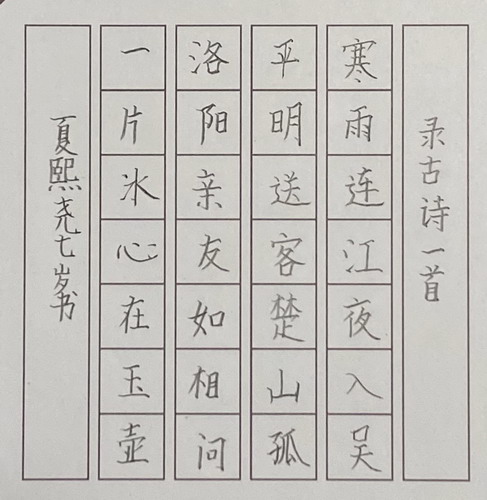 录古诗一首
寒雨连江夜入吴
平明送客楚山孤
洛阳亲友如相问
一片氷心在玉壶
夏熙尧七岁书